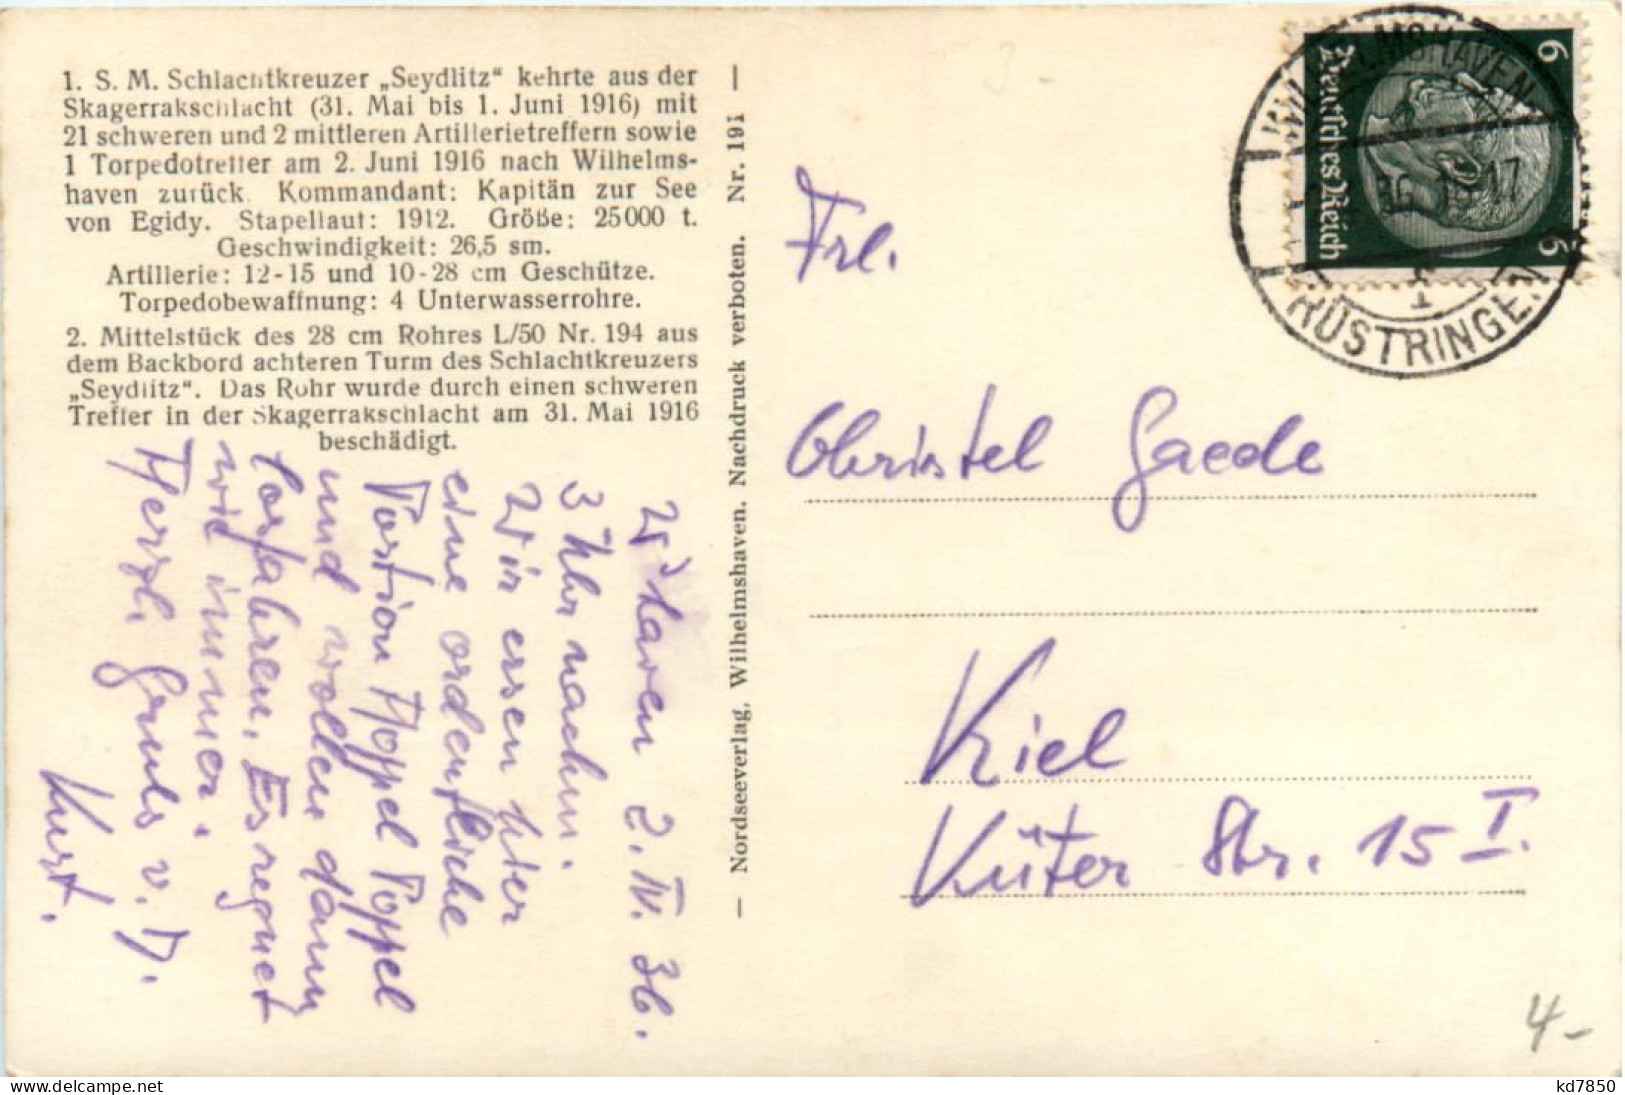 1. S. M. Schlachtkreuzer „Seydlitz“ kehrte aus der
Skagerrakschlacht (31. Mai bis 1. Juni 1916) mit
21 schweren und 2 mittleren Artillerietreffern sowie
1 Torpedotreffer am 2. Juni 1916 nach Wilhelms-
haven zurück. Kommandant: Kapitän zur See
von Egidy. Stapellauf: 1912. Größe: 25000 t.
Geschwindigkeit: 26,5 sm.
Artillerie: 12-15 und 10-28 cm Geschütze.
Torpedobewaffnung: 4 Unterwasserrohre.
2. Mittelstück des 28 cm Rohres L/50 Nr. 194 aus
dem Backbord achteren Turm des Schlachtkreuzers
„Seydlitz“. Das Rohr wurde durch einen schweren
Treffer in der Skagerrakschlacht am 31. Mai 1916
beschädigt.
W'haven 2. IV. 36.
3 Uhr nachm.
Wir essen hier
eine ordentliche
Portion Hoppel Poppel
und wollen dann
losfahren. Es regnet
wie immer.
Herzl. Gruß v. D.
Kurt.
— Nordseeverlag, Wilhelmshaven. Nachdruck verboten. Nr. 191 —
Frl.
Christel Gaede
Kiel
Küter Str. 15 I.
Deutsches Reich
6
6
WILHELMSHAVEN
36 16-17
RÜSTRINGEN
1
4-
www.delcampe.net
kd7850